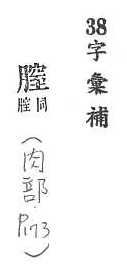 38字彙補
同
(肉部 P.173)